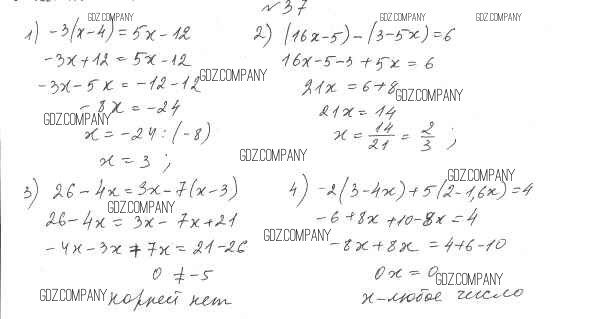 №37
1) -3(x-4) = 5x-12
-3x+12 = 5x-12
-3x-5x = -12-12
-8x = -24
x = -24:(-8)
x = 3 ;
2) (16x-5)-(3-5x)=6
16x-5-3+5x = 6
21x = 6+8
21x = 14
x = 14/21 = 2/3 ;
3) 26-4x = 3x-7(x-3)
26-4x = 3x-7x+21
-4x-3x+7x = 21-26
0 ≠ -5
корней нет
4) -2(3-4x)+5(2-1,6x)=4
-6+8x+10-8x = 4
-8x+8x = 4+6-10
0x = 0
x-любое число
GDZ.COMPANY
GDZ.COMPANY
GDZ.COMPANY
GDZ.COMPANY
GDZ.COMPANY
GDZ.COMPANY
GDZ.COMPANY
GDZ.COMPANY
GDZ.COMPANY
GDZ.COMPANY
GDZ.COMPANY
GDZ.COMPANY